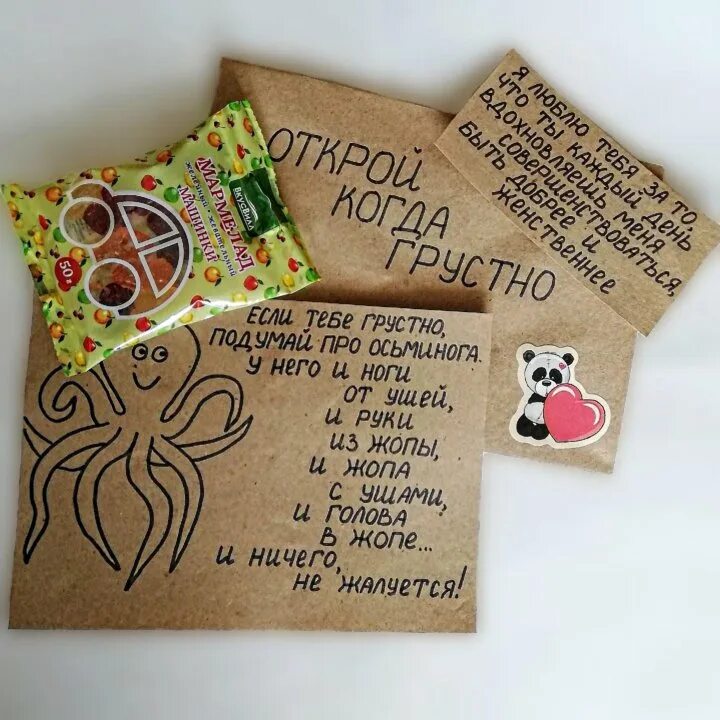 ОТКРОЙ
КОГДА
ГРУСТНО
Я ЛЮБЛЮ ТЕБЯ ЗА ТО,
ЧТО ТЫ КАЖДЫЙ ДЕНЬ
ВДОХНОВЛЯЕШЬ МЕНЯ
СОВЕРШЕНСТВОВАТЬСЯ,
БЫТЬ ДОБРЕЕ И
ЖЕНСТВЕННЕЕ
ВкусВилл
МАРМЕЛАД
желейный жевательный
МАШИНКИ
50 г
ЕСЛИ ТЕБЕ ГРУСТНО,
ПОДУМАЙ ПРО ОСЬМИНОГА.
У НЕГО И НОГИ
ОТ УШЕЙ,
И РУКИ
ИЗ ЖОПЫ,
И ЖОПА
С УШАМИ,
И ГОЛОВА
В ЖОПЕ...
И НИЧЕГО,
НЕ ЖАЛУЕТСЯ!